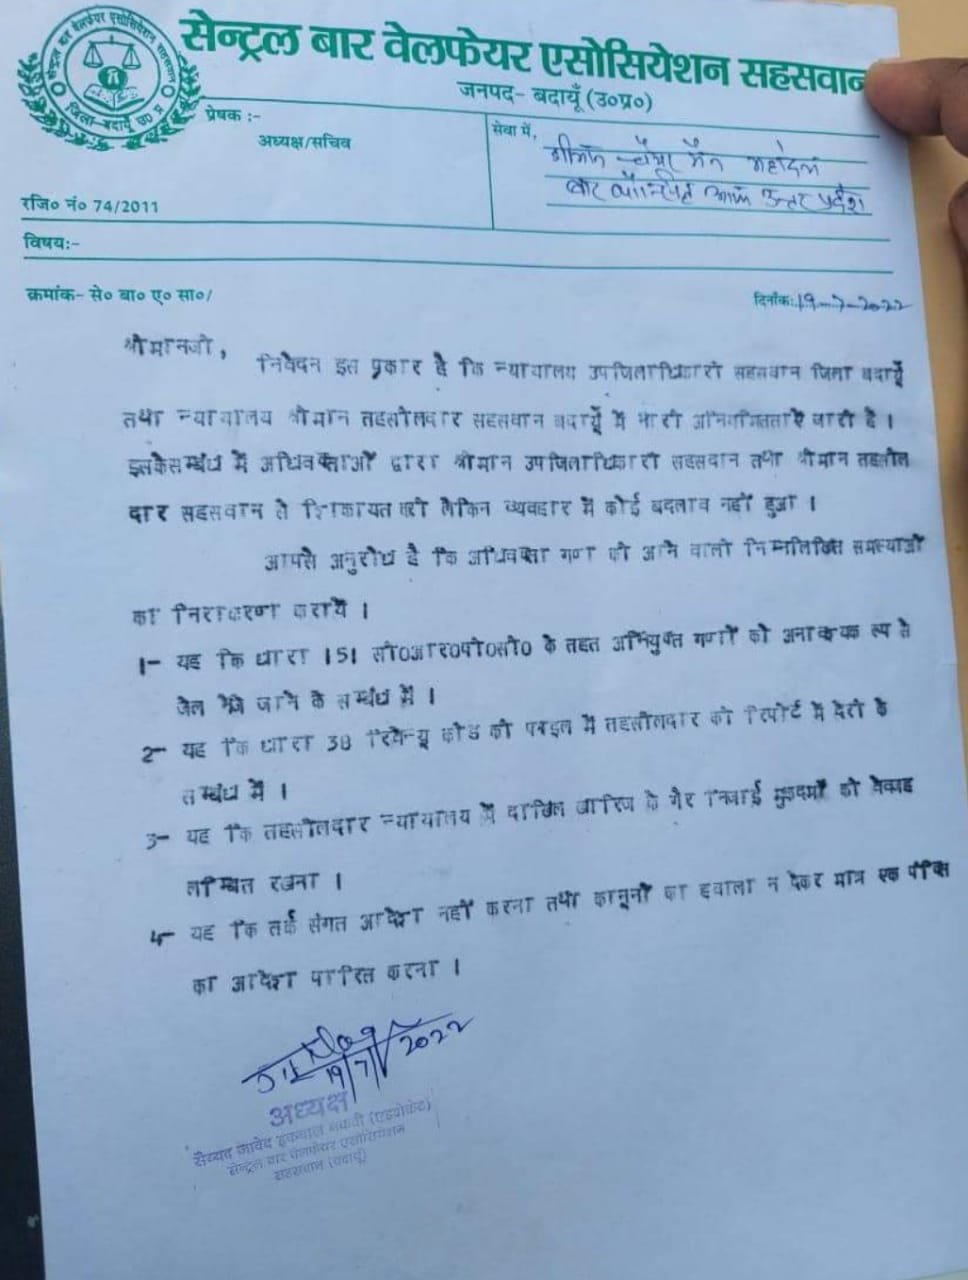 सेन्ट्रल बार वेलफेयर एसोसियेशन सहसवान
जनपद- बदायूँ (उ०प्र०)
सेन्ट्रल बार वेलफेयर एसोसियेशन सहसवान
जिला-बदायूँ उ० प्र०
प्रेषक :-
अध्यक्ष/सचिव
रजि० नं० 74/2011
सेवा में,
श्रीमान चेयर मैन महोदय
बार कौन्सिल आफ उत्तर प्रदेश
विषय:-
क्रमांक- से० बा० ए० सा०/
दिनांक: 19-7-2022
श्रीमानजी,
निवेदन इस प्रकार है कि न्यायालय उपजिलाधिकारी सहसवान जिला बदायूँ
तथा न्यायालय श्रीमान तहसीलदार सहसवान बदायूँ में भारी अनियमितताऐं जारी है।
इसकेसम्बंध में अधिवक्ताओं द्वारा श्रीमान उपजिलाधिकारी सहसवान तथा श्रीमान तहसील
दार सहसवान से शिकायत करी लेकिन व्यवहार में कोई बदलाव नहीं हुआ ।
आपसे अनुरोध है कि अधिवक्ता गण को आने वाली निम्नलिखित समस्याओं
का निराकरण करायें ।
1- यह कि धारा 151 सी०आर०पी०सी० के तहत अभियुक्त गणों को अनावश्यक रूप से
जेल भेजे जाने के सम्बंध में ।
2- यह कि धारा 38 रिवेन्यू कोड की पत्राइल में तहसीलदार की रिपोर्ट में देरी के
सम्बंध में ।
3- यह कि तहसीलदार न्यायालय में दाखिल खारिज के गैर निजाई मुकदमों को वेवजह
लम्बित रखना ।
4- यह कि तर्क संगत आदेश नहीं करना तथा कानूनों का हवाला न देकर मात्र एक पंक्ति
का आदेश पारित करना ।
19/7/2022
अध्यक्ष
सैय्यद जावेद इकबाल नकवी (एडवोकेट)
सेन्ट्रल बार वेलफेयर एसोसियेशन
सहसवान (बदायूँ)